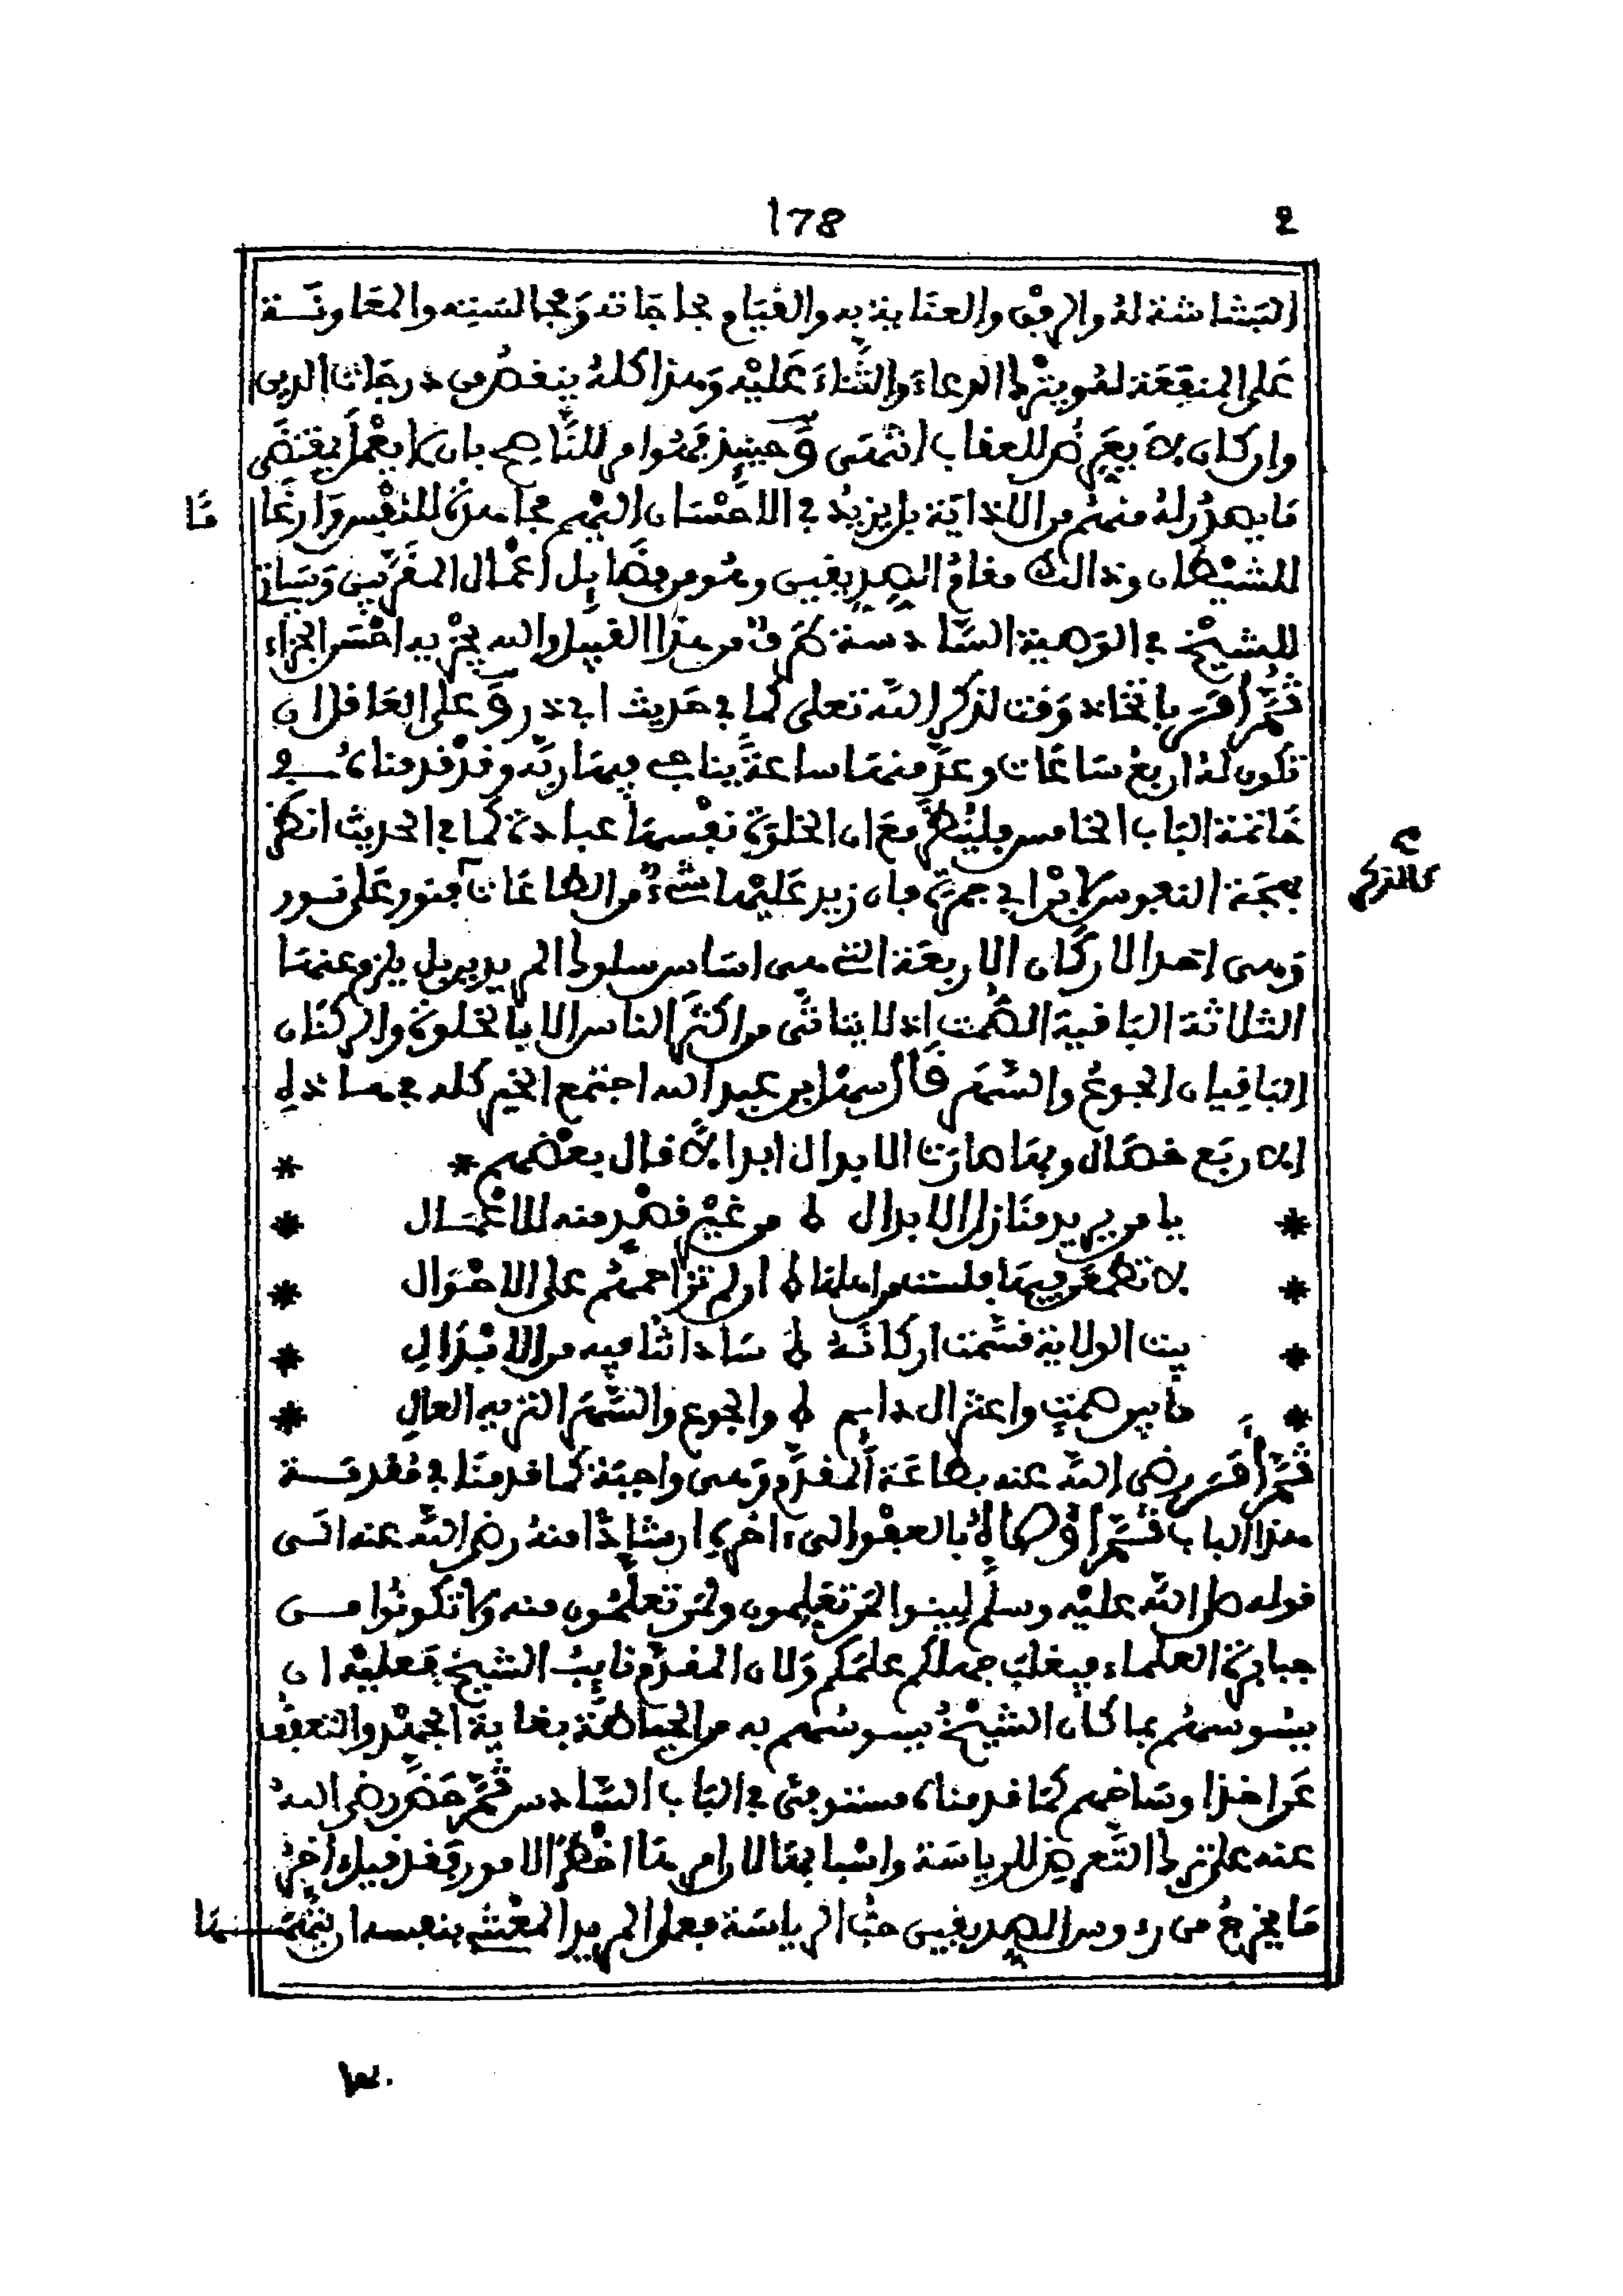 178
البشاشة له والرفق والعناية به والقيام بحاجاته ومجالسته والمعاونة
على المنفعة له ويترك الدعاء والثناء عليه وهذا كله ينقص من درجات الدين
وان كان لا يعرض للعقاب انتهى وحينئذ فمتوا من للناصح بان لا يعمل بمقتضى
ما يصدر له منهم من الاذاية بل يزيد في الاحسان اليهم مجاهدة للنفس وارغاما
للشيطان وذالك مقام الصديقين وهو من فضايل اعمال المقربين وسياتي
للشيخ في الوصية السادسة طرف من هذا القبيل والله يجزيه احسن الجزاء
ثم امر باتخاذ وقت لذكر الله تعلى كما في حديث ابي ذر وعلى العاقل ان
تكون له اربع ساعات وعد منها ساعة يناجي فيها ربه وقد قدمناه في
خاتمة الباب الخامس فلينظر مع ان الخلوة نفسها عبادة كما في الحديث انظر
بهجة النفوس لابن ابي جمرة فان زيد عليها شيء من الطاعات فنور على نور
كالذكر
وهي احد الاركان الاربعة التي هي اساس سلوك المريد بل يلزم عنها
الثلاثة الباقية الصمت اذ لا يتاتى من اكثر الناس الا بالخلوة والركنان
الباقيان الجوع والسهر قال سهل بن عبد الله اجتمع الخير كله في هاذه
الاربع خصال وبها صارت الابدال ابدالا قال بعضهم
يا من يريد منازل الابدال من غير قصد منه للاعمال
لا تطمعن فيها فلست من اهلها ان لم تزاحمهم على الاحوال
بيت الولاية قسمت اركانه ساداتنا فيه من الابدال
ما بين صمت واعتزال دايم والجوع والسهر النزيه العال
ثم امر رضي الله عنه بطاعة المقدم وهي واجبة كما قدمنا في مقدمة
هذا الباب ثم اوصاه بالعفو الىء اخره ارشادا منه رضي الله عنه الى
قوله صلى الله عليه وسلم لينوا لمن تعلمون ولمن تعلمون منه ولا تكونوا من
جبابرة العلماء فيغلب جهلكم علمكم ولان المقدم نايب الشيخ فعليه ان
يسوسهم بما كان الشيخ يسوسهم به من الحياطة بغاية الجهد والتعفف
عن اخذ اوساخهم كما قدمناه مستوفى في الباب السادس ثم حض رضي الله
عنه على ترك التعرض للرياسة واسبابها لانها من اخطر الامور فقد قيل ءاخر
ما يخرج من رءوس الصديقين حب الرياسة فعلى المريد المعتني بنفسه ان يتهمها